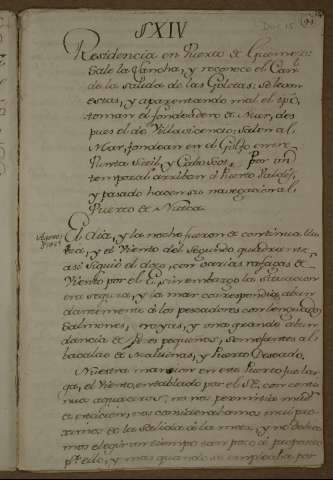 SXIV
Residencia en Puerto de Guemez:
Sale la Lancha, y reconoce el Can.l
de la salida de las Goletas: se levan
estas, y aparentando mal el tpo,
toman el fondeadero de Mur, des
pues el de Villavicencio: salen al
Mar, fondean en el Golfo entre
Punta y Cabo por un
temporal arriban á Puerto Valdés,
y pasado hacen su navegacion al
Puerto de
El dia, y la noche fueron de continua llu
via, y el Viento del segundo quadrante
asi siguió el dos, con varias rafagas de
Viento por el E, sin embargo la situacion
era segura, y la mar correspondia abun
dantemente á los pescadores con lenguados,
Salmones, royas, y una grande abun
dancia de peces pequeños, semejantes al
bacalao de Maluinas, y Puerto Deseado.
Nuestra mansion en este Puerto fue lar
ga, el Viento, entablado por el SE, con conti
nuos aguaceros, no nos permitia
de estacion, nos considerabamos muy pro
ximos de la salida á la mar, y no debia
mos elegir un tiempo tan poco á proposito
p.a ello, y mas quando se empleaba por